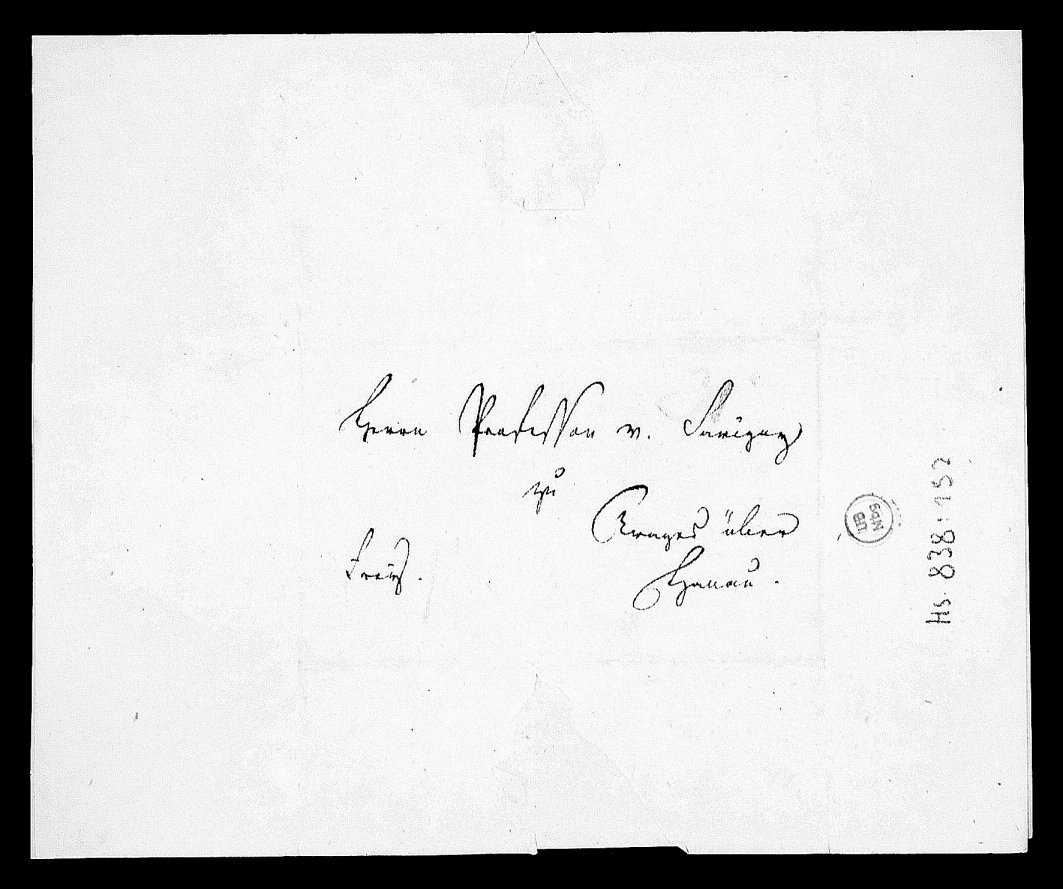 Herrn Professor v. Savigny
zu
Trages über
Hanau.
frey.
UB
Mbg
Hs. 838:152